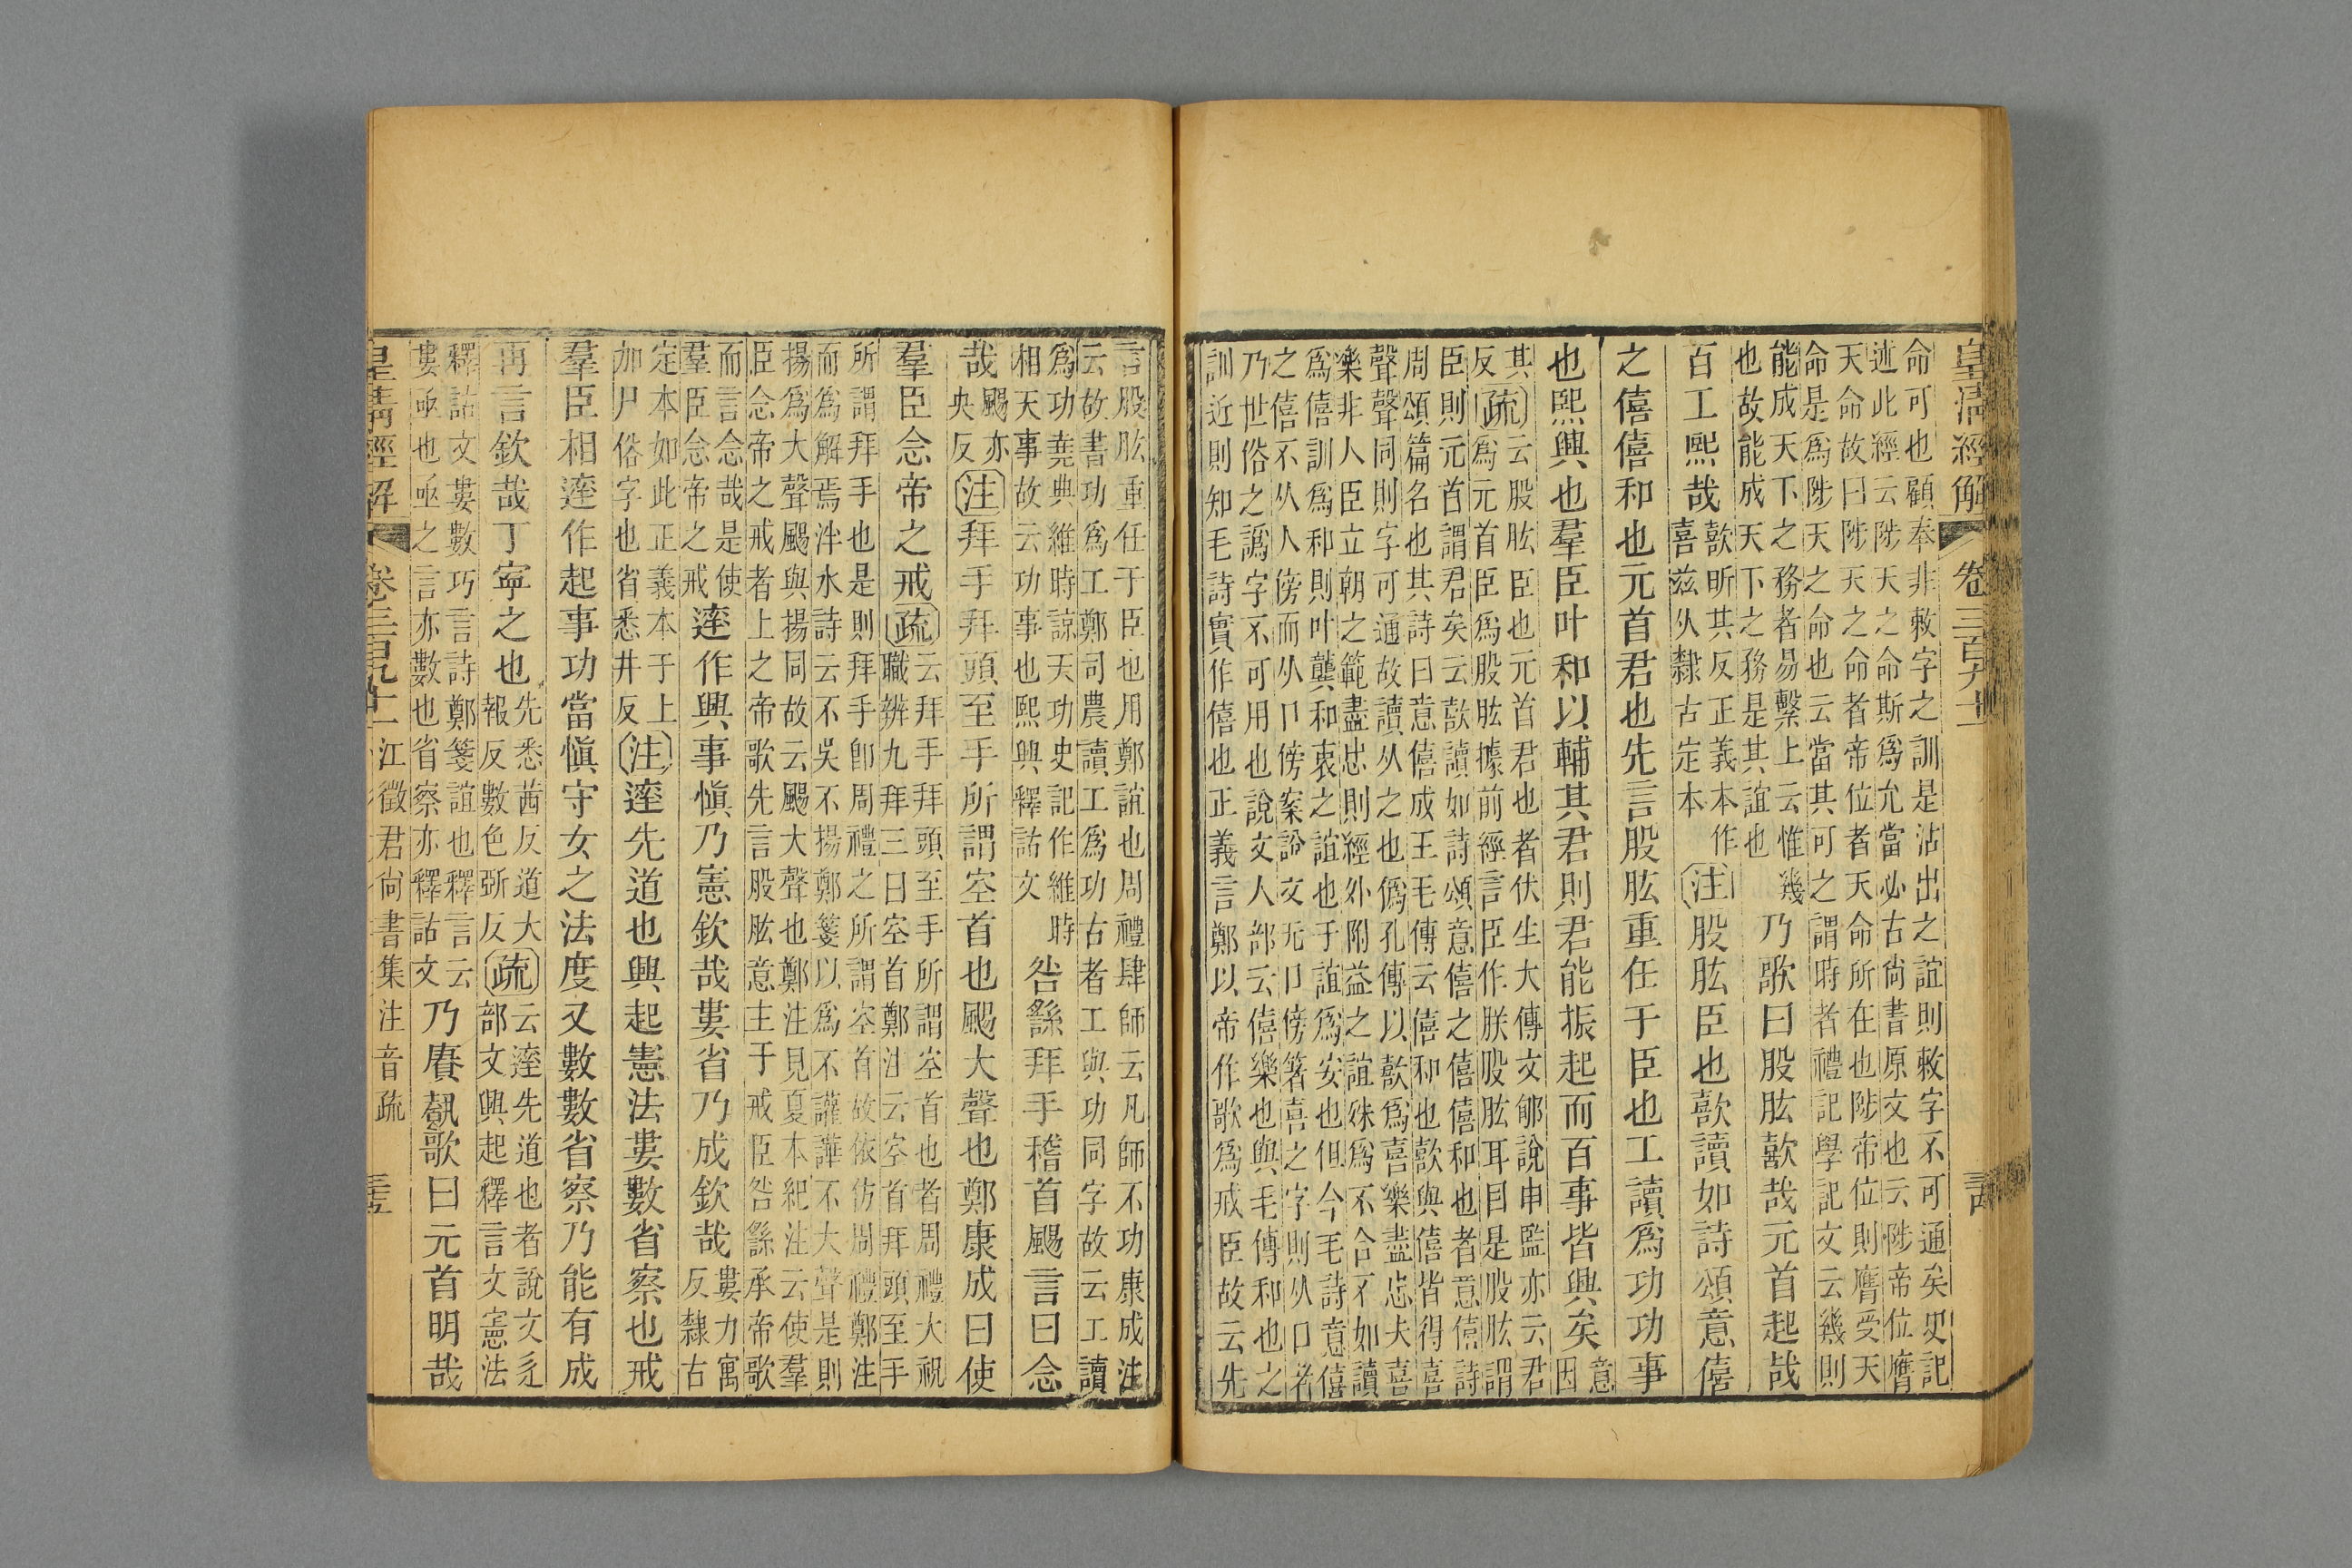 皇淸經解 卷三百九十一
命可也顧奉非敕字之訓是沽出之誼則敕字不可通矣史記
述此經云陟天之命斯爲允當必古尙書原文也云陟帝位膺
天命故曰陟天之命者帝位者天命所在也陟帝位則膺受天
命是爲陟天之命也云當其可之謂時者禮記學記文云幾則
能成天下之務者易繫上云惟幾
也故能成天下之務是其誼也
乃歌曰股肱歖哉元首起哉
百工熙哉
歖昕其反正義本作
喜兹从隸古定本
注股肱臣也歖讀如詩頌意僖
之僖僖和也元首君也先言股肱重任于臣也工讀爲功功事
也熙興也羣臣叶和以輔其君則君能振起而百事皆興矣
意
因
其
反
疏
云股肱臣也元首君也者伏生大傳文郇說申監亦云君
爲元首臣爲股肱據前經言臣作朕股肱耳目是股肱謂
臣則元首謂君矣云歖讀如詩頌意僖之僖僖和也者意僖詩
周頌篇名也其詩曰意僖成王毛傳云僖和也歖與僖皆得喜
聲聲同則字可通故讀从之也僞孔傳以歖爲喜樂盡忠夫喜
樂非人臣立朝之範盡忠則經外附益之誼殊爲不合不如讀
爲僖訓爲和則叶龔和衷之誼也于誼爲安也但今毛詩意僖
之僖不从人傍而从口傍案說文无口傍箸喜之字則从口者
乃世俗之譌字不可用也說文人部云僖樂也與毛傳和也之
訓近則知毛詩實作僖也正義言鄭以帝作歌爲戒臣故云先
言股肱重任于臣也用鄭誼也周禮肆師云凡師不功康成注
云故書功爲工鄭司農讀工爲功古者工與功同字故云工讀
爲功堯典維時諒天功史記作維時
相天事故云功事也熙興釋詁文
咎繇拜手稽首颺言曰念
哉
颺亦
央反
注拜手拜頭至手所謂空首也颺大聲也鄭康成曰使
羣臣念帝之戒
疏
云拜手拜頭至手所謂空首也者周禮大祝
職辨九拜三曰空首鄭注云空首拜頭至手
所謂拜手也是則拜手卽周禮之所謂空首故依仿周禮鄭注
而爲解焉泮水詩云不吳不揚鄭箋以爲不讙譁不大聲是則
揚爲大聲颺與揚同故云颺大聲也鄭注見夏本紀注云使羣
臣念帝之戒者上之帝歌先言股肱意主于戒臣咎繇承帝歌
而言念哉是使
羣臣念帝之戒
逹作興事愼乃憲欽哉婁省乃成欽哉
婁力寓
反隸古
定本如此正義本于上
加尸俗字也省悉井反
注逹先道也興起憲法婁數省察也戒
羣臣相逹作起事功當愼守女之法度又數數省察乃能有成
再言欽哉丁寜之也
先悉茜反道大
報反數色弫反
疏
云逹先道也者說文辵
部文興起釋言文憲法
釋詁文婁數巧言詩鄭箋誼也釋言云
婁亟也亟之言亦數也省察亦釋詁文
乃賡䎗歌曰元首明哉
皇淸經解 卷三百九十一 江徵君尙書集注音疏